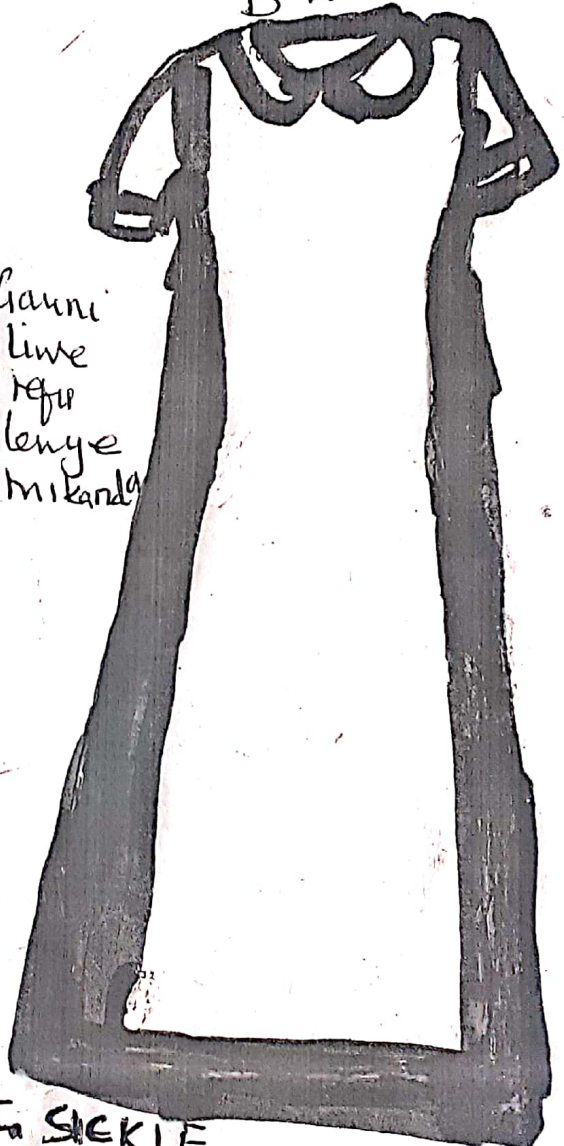 Gauni
liwe
refu
lenye
mikanda
SICKLE